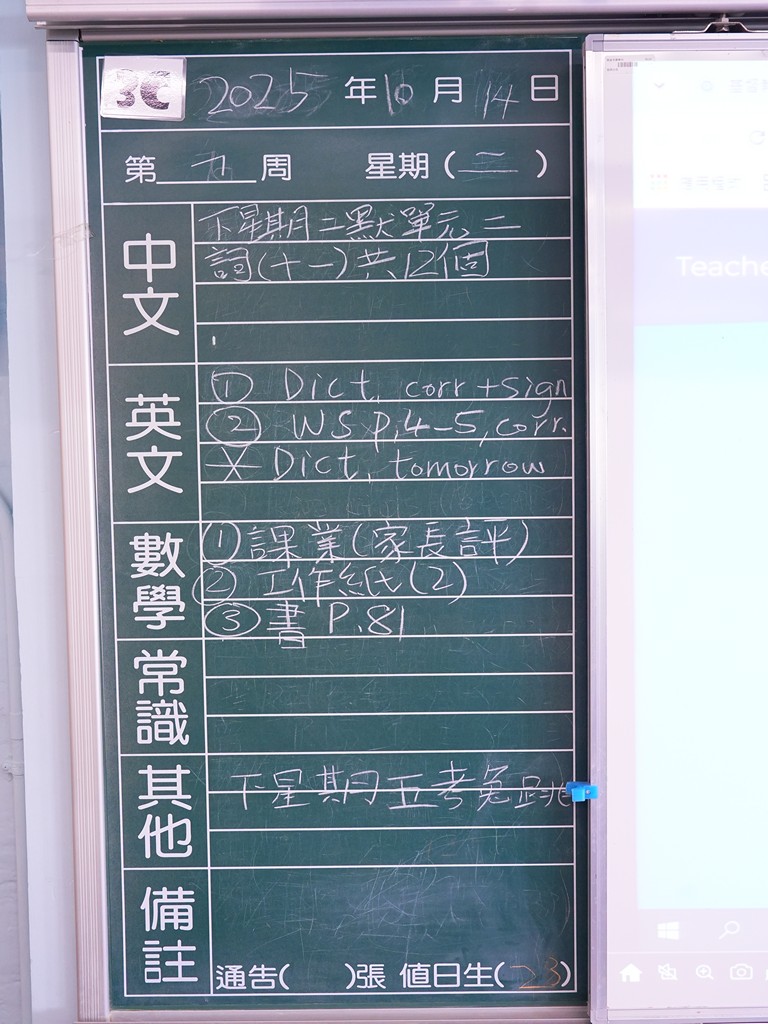 3C 2025年10月14日
第九周 星期(二)
中文
下星期二默單元二
詞(十一)共12個
英文
① Dict. corr + sign
② WS p.4-5, corr.
* Dict. tomorrow
數學
①課業(家長評)
②工作紙(2)
③書 P.81
常識
其他
下星期五考兔跳
備註
通告( )張 值日生(23)
Teache